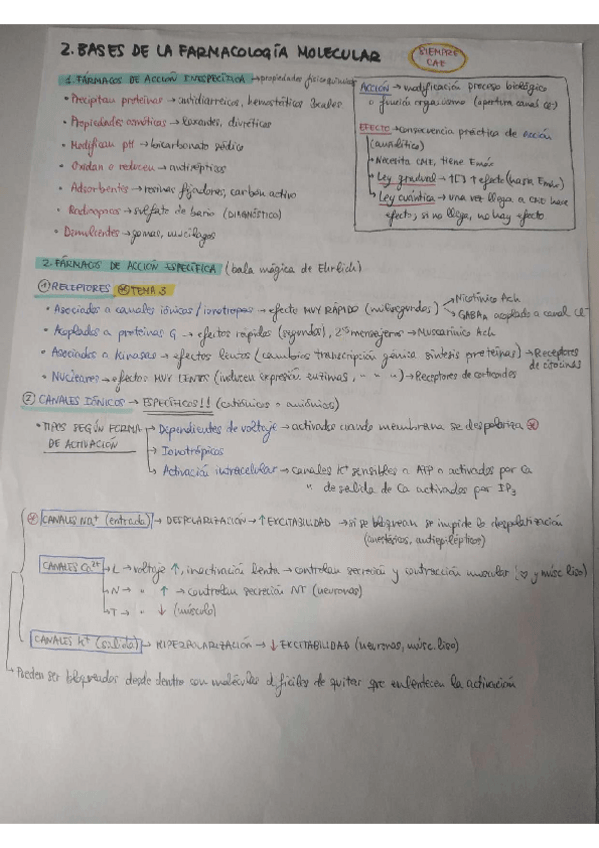 2. BASES DE LA FARMACOLOGÍA MOLECULAR
SIEMPRE
CAE
1. FÁRMACOS DE ACCIÓN INESPECÍFICA → propiedades fisicoquímicas
• Precipitan proteínas → antidiarreicos, hemostáticos locales
• Propiedades osmóticas → laxantes, diuréticos
• Modifican pH → bicarbonato sódico
• Oxidan o reducen → antisépticos
• Adsorbentes → resinas fijadoras, carbón activo
• Radiopacos → sulfato de bario (DIAGNÓSTICO)
• Demulcentes → gomas, mucílagos
ACCIÓN → modificación proceso biológico
o función organismo (apertura canal Cl-)
EFECTO → consecuencia práctica de acción
(ansiolítico)
• Necesita CME, tiene Emáx
Ley gradual → ↑[ ] ↑ efecto (hasta Emáx)
Ley cuántica → una vez llega a CME hace
efecto, si no llega, no hay efecto
2. FÁRMACOS DE ACCIÓN ESPECÍFICA (bala mágica de Ehrlich)
① RECEPTORES TEMA 3
• Asociados a canales iónicos / ionotropos → efecto MUY RÁPIDO (milisegundos) → Nicotínico Ach
→ GABAA acoplado a canal Cl-
• Acoplados a proteínas G → efectos rápidos (segundos), 2os mensajeros → Muscarínico Ach
• Asociados a kinasas → efectos lentos (cambios transcripción génica síntesis proteínas) → Receptores
de citocinas
• Nucleares → efectos MUY LENTOS (inducen expresión enzimas, " " ") → Receptores de corticoides
② CANALES IÓNICOS → ESPECÍFICOS!! (catiónicos o aniónicos)
• TIPOS SEGÚN FORMA
DE ACTIVACIÓN
→ Dependientes de voltaje → activados cuando membrana se despolariza
→ Ionotrópicos
→ Activación intracelular → canales K+ sensibles a ATP o activados por Ca
" de salida de Ca activados por IP3
CANALES Na+ (entrada) → DESPOLARIZACIÓN → ↑ EXCITABILIDAD → si se bloquean se impide la despolarización
(anestésicos, antiepilépticos)
CANALES Ca2+ → L → voltaje ↑, inactivación lenta → controlan secreción y contracción muscular (♡ y músc liso)
→ N → " ↑ → controlan secreción NT (neuronas)
→ T → " ↓ (músculo)
CANALES K+ (salida) → HIPERPOLARIZACIÓN → ↓ EXCITABILIDAD (neuronas, músc. liso)
→ Pueden ser bloqueados desde dentro con moléculas difíciles de quitar que enlentecen la activación